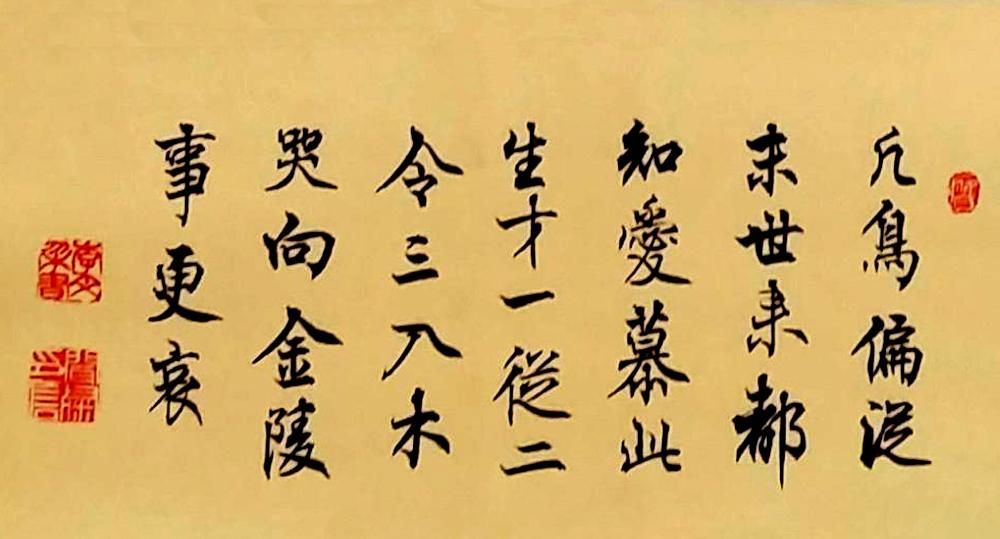 凡鳥偏從
末世来都
知愛慕此
生才一從二
令三入木
哭向金陵
事更哀